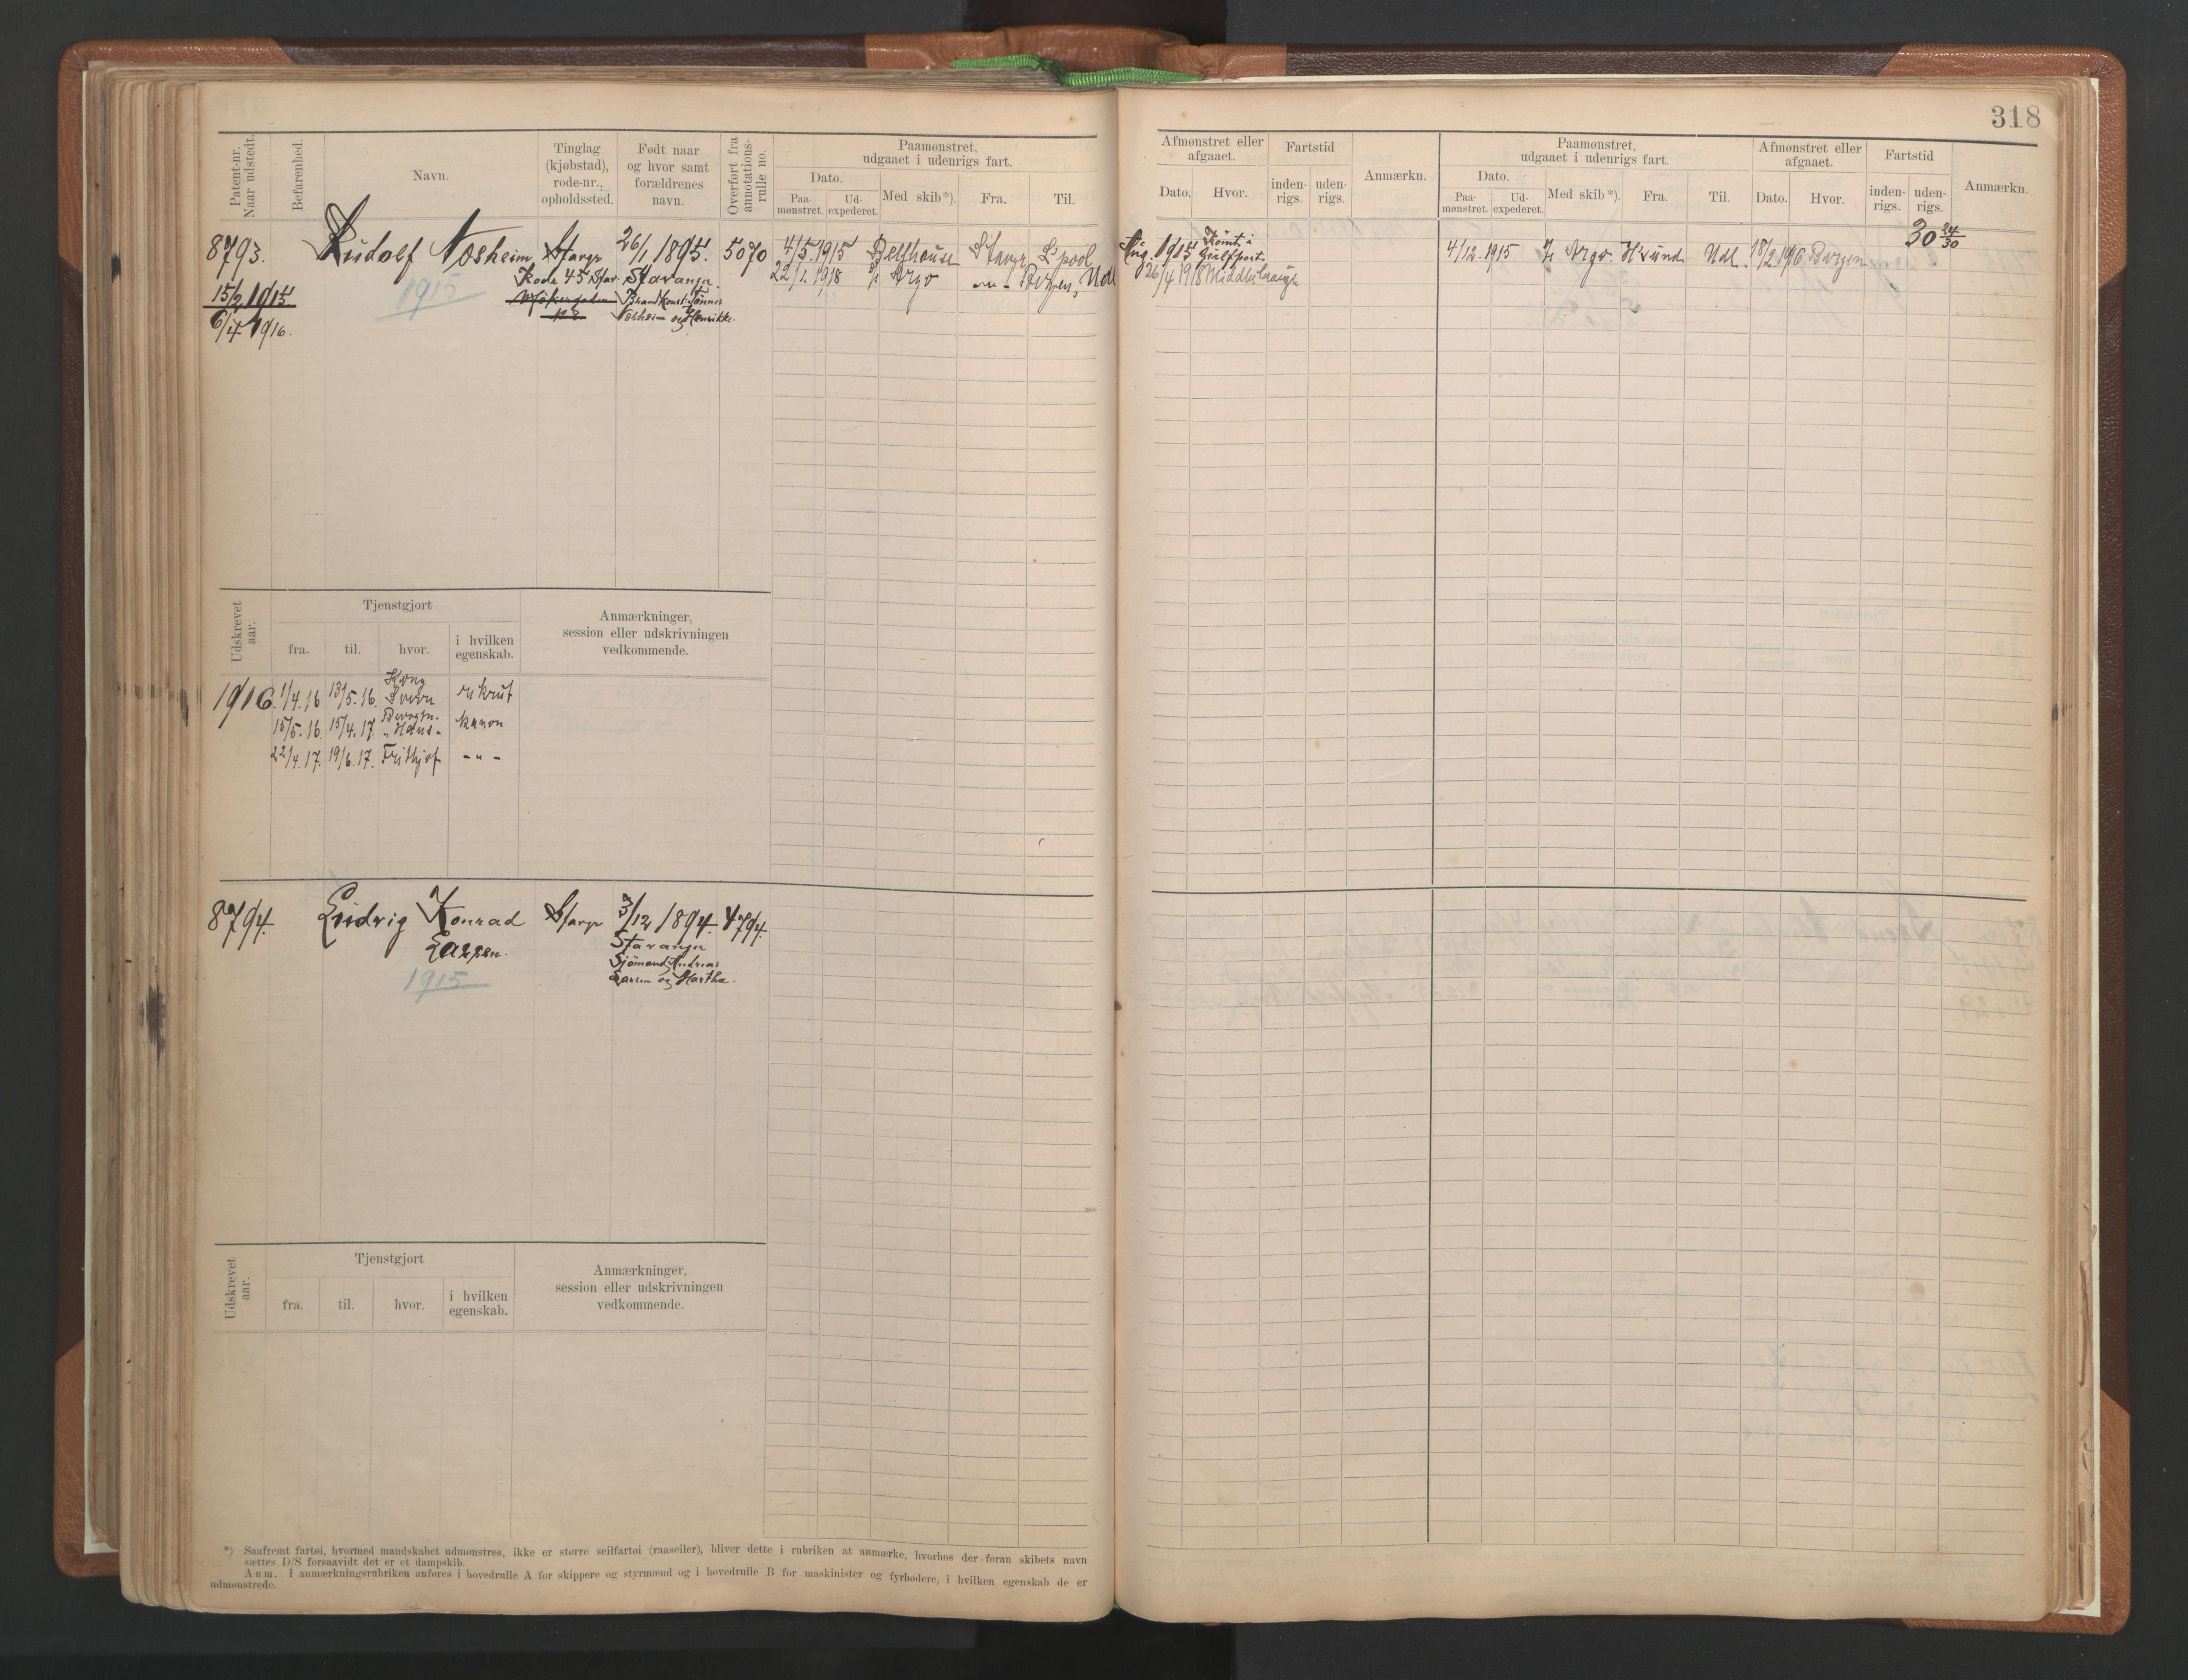 318
Patent-nr. Naar udstedt.
Befarenhed.
Navn.
Tinglag (kjøbstad), rode-nr., opholdssted.
Født naar og hvor samt forældrenes navn.
Overført fra annotations-rulle no.
Paamønstret, udgaaet i udenrigs fart.
Dato.
Paa-mønstret.
Ud-expederet.
Med skib*).
Fra.
Til.
Afmønstret eller afgaaet.
Dato.
Hvor.
Fartstid
inden-rigs.
uden-rigs.
Anmærkn.
Paamønstret, udgaaet i udenrigs fart.
Dato.
Paa-mønstret.
Ud-expederet.
Med skib*).
Fra.
Til.
Afmønstret eller afgaaet.
Dato.
Hvor.
Fartstid
inden-rigs.
uden-rigs.
Anmærkn.
8793.
15/2 1915
6/4 1916.
Rudolf Nosheim
1915
Stavgr
Rode 45 Stav.
26/1 1895.
Stavanger.
Brandkonst. Tønnes
Nosheim og Henrikke.
5070
4/5 1915 Bellhouse Stavgr L'pool
22/1 1918 Argo Bergen, Udl
Aug. 1915 Rømt i Gulfport
26/4 1918 Middlesbrough
4/12. 1915 Argo. H'sund Udl. 18/2 1916 Bergen
30 24/30
Udskrevet aar.
Tjenstgjort
fra.
til.
hvor.
i hvilken egenskab.
Anmærkninger, session eller udskrivningen vedkommende.
1916. 1/4.16 13/5.16. Kong Sverre rekrut
15/5.16. 15/4.17. kanon
22/4.17. 19/6.17. Frithjof - " -
8794.
Ludvig Konrad
Larsen.
1915
Stavgr
3/12 1894.
Stavanger
Sjömand Andreas
Larsen og Martha.
4794.
Udskrevet aar.
Tjenstgjort
fra.
til.
hvor.
i hvilken egenskab.
Anmærkninger, session eller udskrivningen vedkommende.
*) Saafremt fartøi, hvormed mandskabet udmønstres, ikke er større seilfartøi (raaseiler), bliver dette i rubriken at anmærke, hvorhos der foran skibets navn
sættes D/S forsaavidt det er et dampskib.
Anm. I anmærkningsrubriken anføres i hovedrulle A for skippere og styrmænd og i hovedrulle B for maskinister og fyrbødere, i hvilken egenskab de er
udmønstrede.